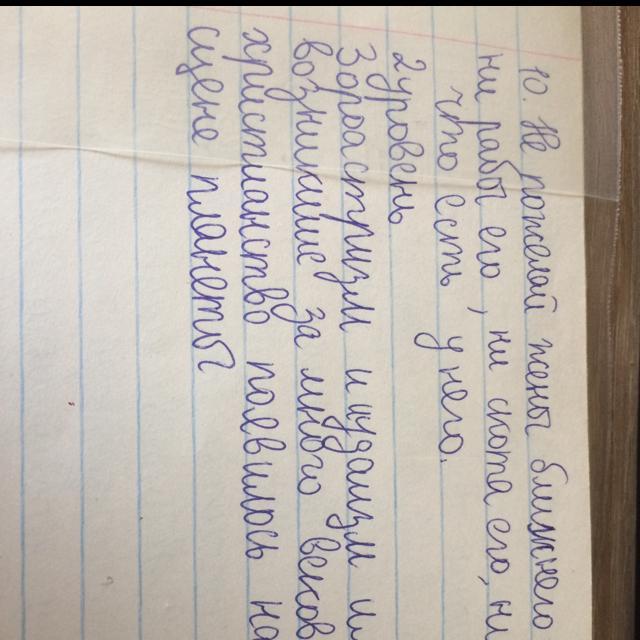 10. Не пожелай жены ближнего
ни рабы его, ни скота его, ни
что есть у него.
2 уровень
Зороастризм и иудаизм
возникшие за много веков
христианство поевилось на
сцене планеты